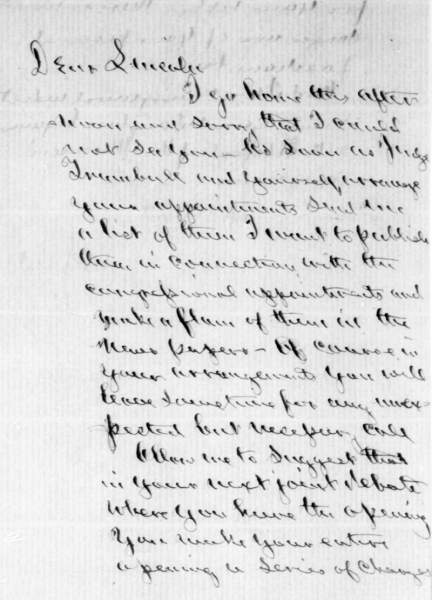 Dear Lincoln
I go home this after
noon and sorry that I could
not see you – As soon as Judge
Trumbull and yourself arrange
your appointments send me
a list of them I want to publish
them in connection with the
congressional appointments and
make a flam of them in the
News papers – Of course in
your arrangements you will
leave some time for any unex-
pected but necessary call
Allow me to suggest that
in your next joint debate
where you have the opening
you make your entire
opening a series of Charges